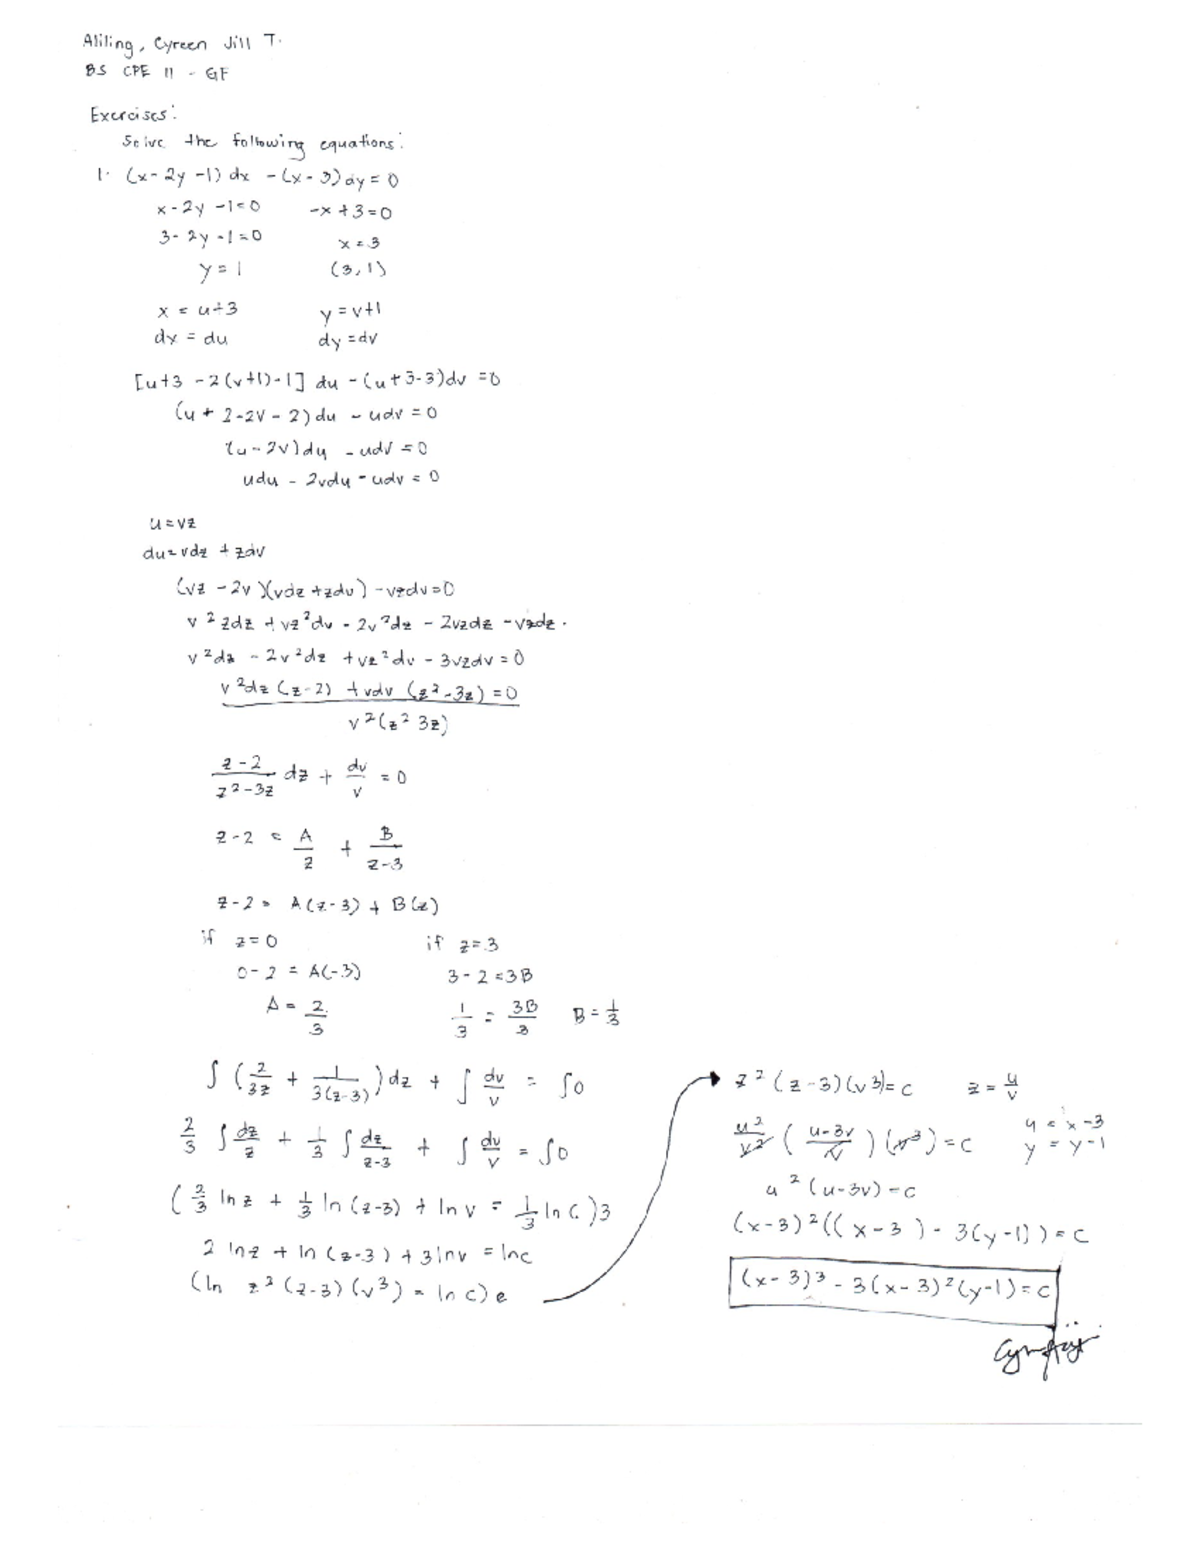 Aliling, Cyreen Jill T.
BS CPE II - GF
Exercises:
Solve the following equations:
1. (x - 2y - 1) dx - (x - 3) dy = 0
x - 2y - 1 = 0 -x + 3 = 0
3 - 2y - 1 = 0 x = 3
y = 1 (3, 1)
x = u + 3 y = v + 1
dx = du dy = dv
[u + 3 - 2(v + 1) - 1] du - (u + 3 - 3) dv = 0
(u + 2 - 2v - 2) du - udv = 0
(u - 2v) du - udv = 0
udu - 2vdu - udv = 0
u = vz
du = vdz + zdv
(vz - 2v)(vdz + zdv) - vzdv = 0
v² zdz + vz² dv - 2v² dz - 2vzdz - vzdz .
v² dz - 2v² dz + vz² dv - 3vzdv = 0
v² dz (z - 2) + vdv (z² - 3z) = 0
v² (z² 3z)
z - 2 / z² - 3z dz + dv / v = 0
z - 2 = A / z + B / z - 3
z - 2 = A(z - 3) + B(z)
if z = 0 if z = 3
0 - 2 = A(-3) 3 - 2 = 3B
A = 2 / 3 1 / 3 = 3B / 3 B = 1/3
∫ (2 / 3z + 1 / 3(z - 3)) dz + ∫ dv / v = ∫0
2/3 ∫ dz / z + 1/3 ∫ dz / z - 3 + ∫ dv / v = ∫0
(2/3 ln z + 1/3 ln (z - 3) + ln v = 1/3 ln C) 3
2 ln z + ln (z - 3) + 3 ln v = ln c
(ln z² (z - 3) (v³) = ln c) e
z² (z - 3) (v³) = c z = u / v
u² / v² (u - 3v / v) (v³) = c u = x - 3
y = y - 1
u² (u - 3v) = c
(x - 3)² ((x - 3) - 3(y - 1)) = c
(x - 3)³ - 3(x - 3)² (y - 1) = c